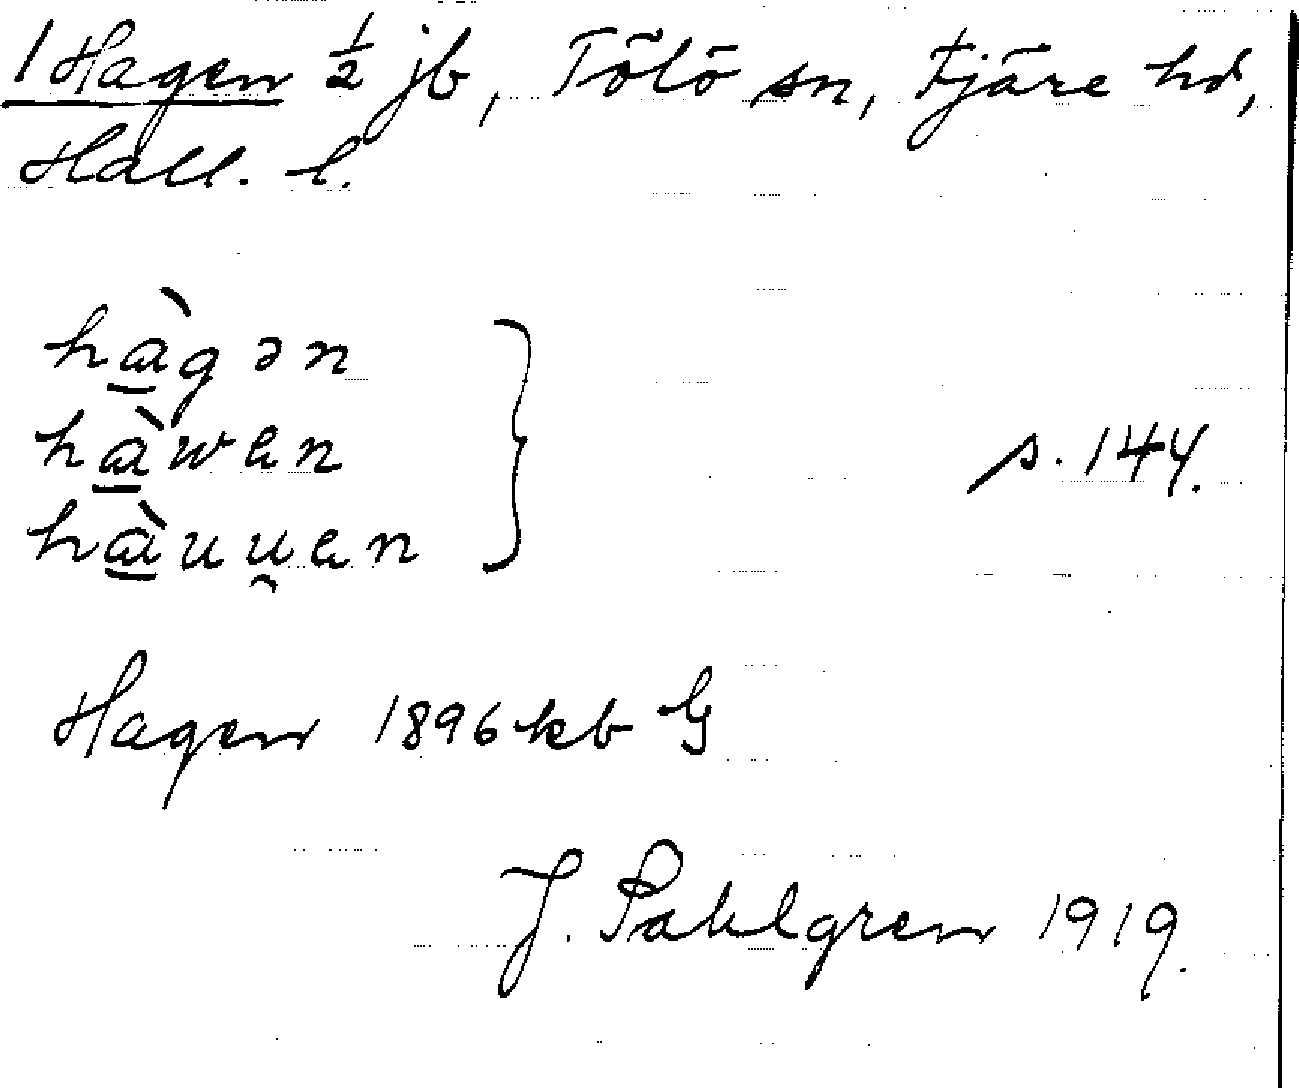 1 Hagen ½ jb, Tölö sn, Fjäre hd,
Hall. l.
hὰ̱gən
hὰ̱wαn
hὰ̱uu̯αn
s. 144.
Hagen 1896 kb G
J. Pahlgren 1919.